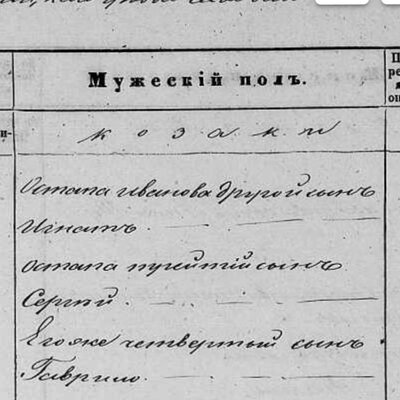 Мужескій полъ.
козаки
Остапа Иванова другой сынъ
Игнатъ.
Остапа третій сынъ
Сергій.
Его же четвертый сынъ
Гаврило.